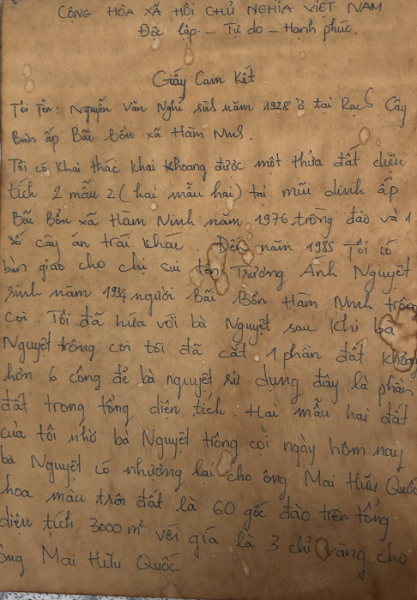 CỘNG HÒA XÃ HỘI CHỦ NGHĨA VIỆT NAM
Độc lập - Tự do - Hạnh phúc.
Giấy Cam Kết
Tôi Tên: Nguyễn Văn Nghỉ sinh năm 1928 ở tại Rạch Cây
Bàn ấp Bãi Bổn xã Hàm Ninh.
Tôi có Khai thác Khai Khoang được một thửa đất diện
tích 2 mẫu 2 (hai mẫu hai) tại mũi dinh ấp
Bãi Bổn xã Hàm Ninh năm 1976 trồng đào và 1
số cây ăn trái Khác. Đến năm 1985 Tôi có
bàn giao cho chị tên Trương Ánh Nguyệt
sinh năm 1934 người Bãi Bổn Hàm Ninh trông
coi Tôi đã hứa với bà Nguyệt sau Khi bà
Nguyệt trông coi tôi đã cắt 1 phần đất khoảng
hơn 6 công để bà nguyệt sử dụng đây là phần
đất trong tổng diện tích. Hai mẫu hai đất
của tôi nhờ bà Nguyệt trông coi ngày hôm nay
bà Nguyệt có nhượng lại cho ông Mai Hữu Quốc
hoa màu trên đất là 60 gốc đào trên tổng
diện tích 3000 m² với giá là 3 chỉ vàng cho
ông Mai Hữu Quốc